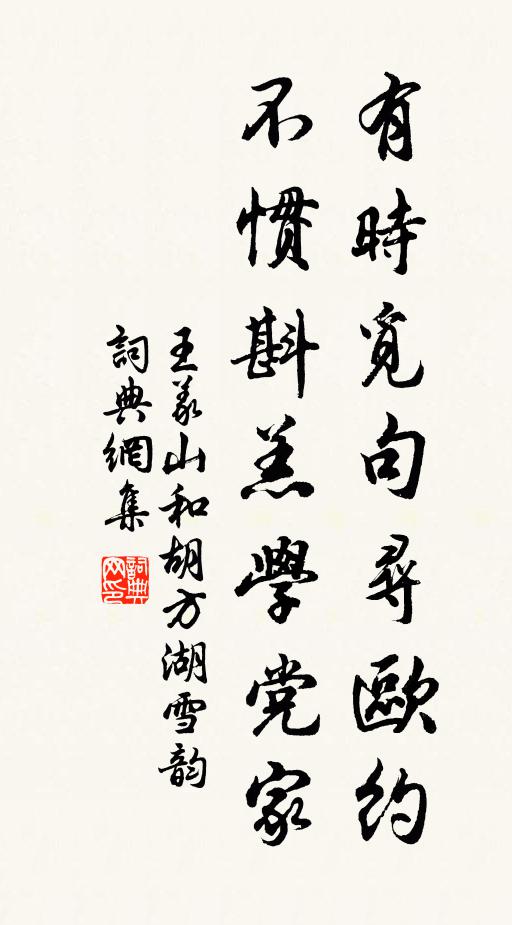 有時覓句尋歐約
不慣斟羔學党家
王義山和胡方湖雪韵
詞典網集
詞典网印